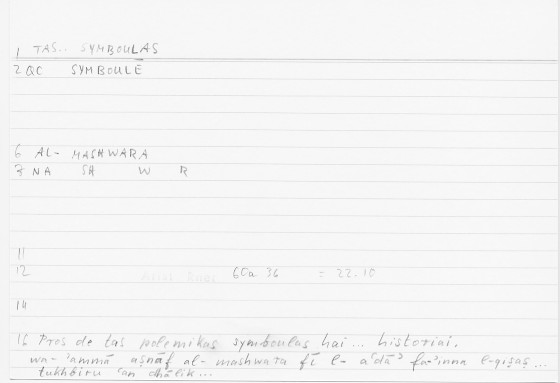 1 TAS.. SYMBOULAS
2 QC SYMBOULĒ
6 AL- MASHWARA
3 NA SH W R
11
12 Arist. Rhet. 60a 36 = 22.10
14
15 Pros de tas polemikas symboulas hai ... historiai.
wa-'ammā aṣnāf al-mashwara fī l-a'dā' fa-'inna l-qiṣaṣ ...
tukhbiru 'an dhālik ...